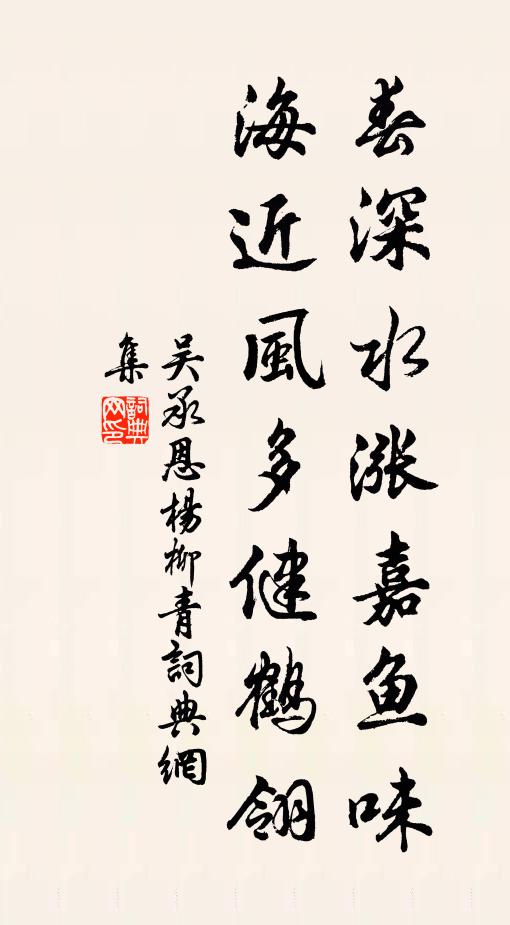 春深水涨嘉鱼味
海近風多健鶴翎
吴承恩楊柳青詞典網
集
詞典網印